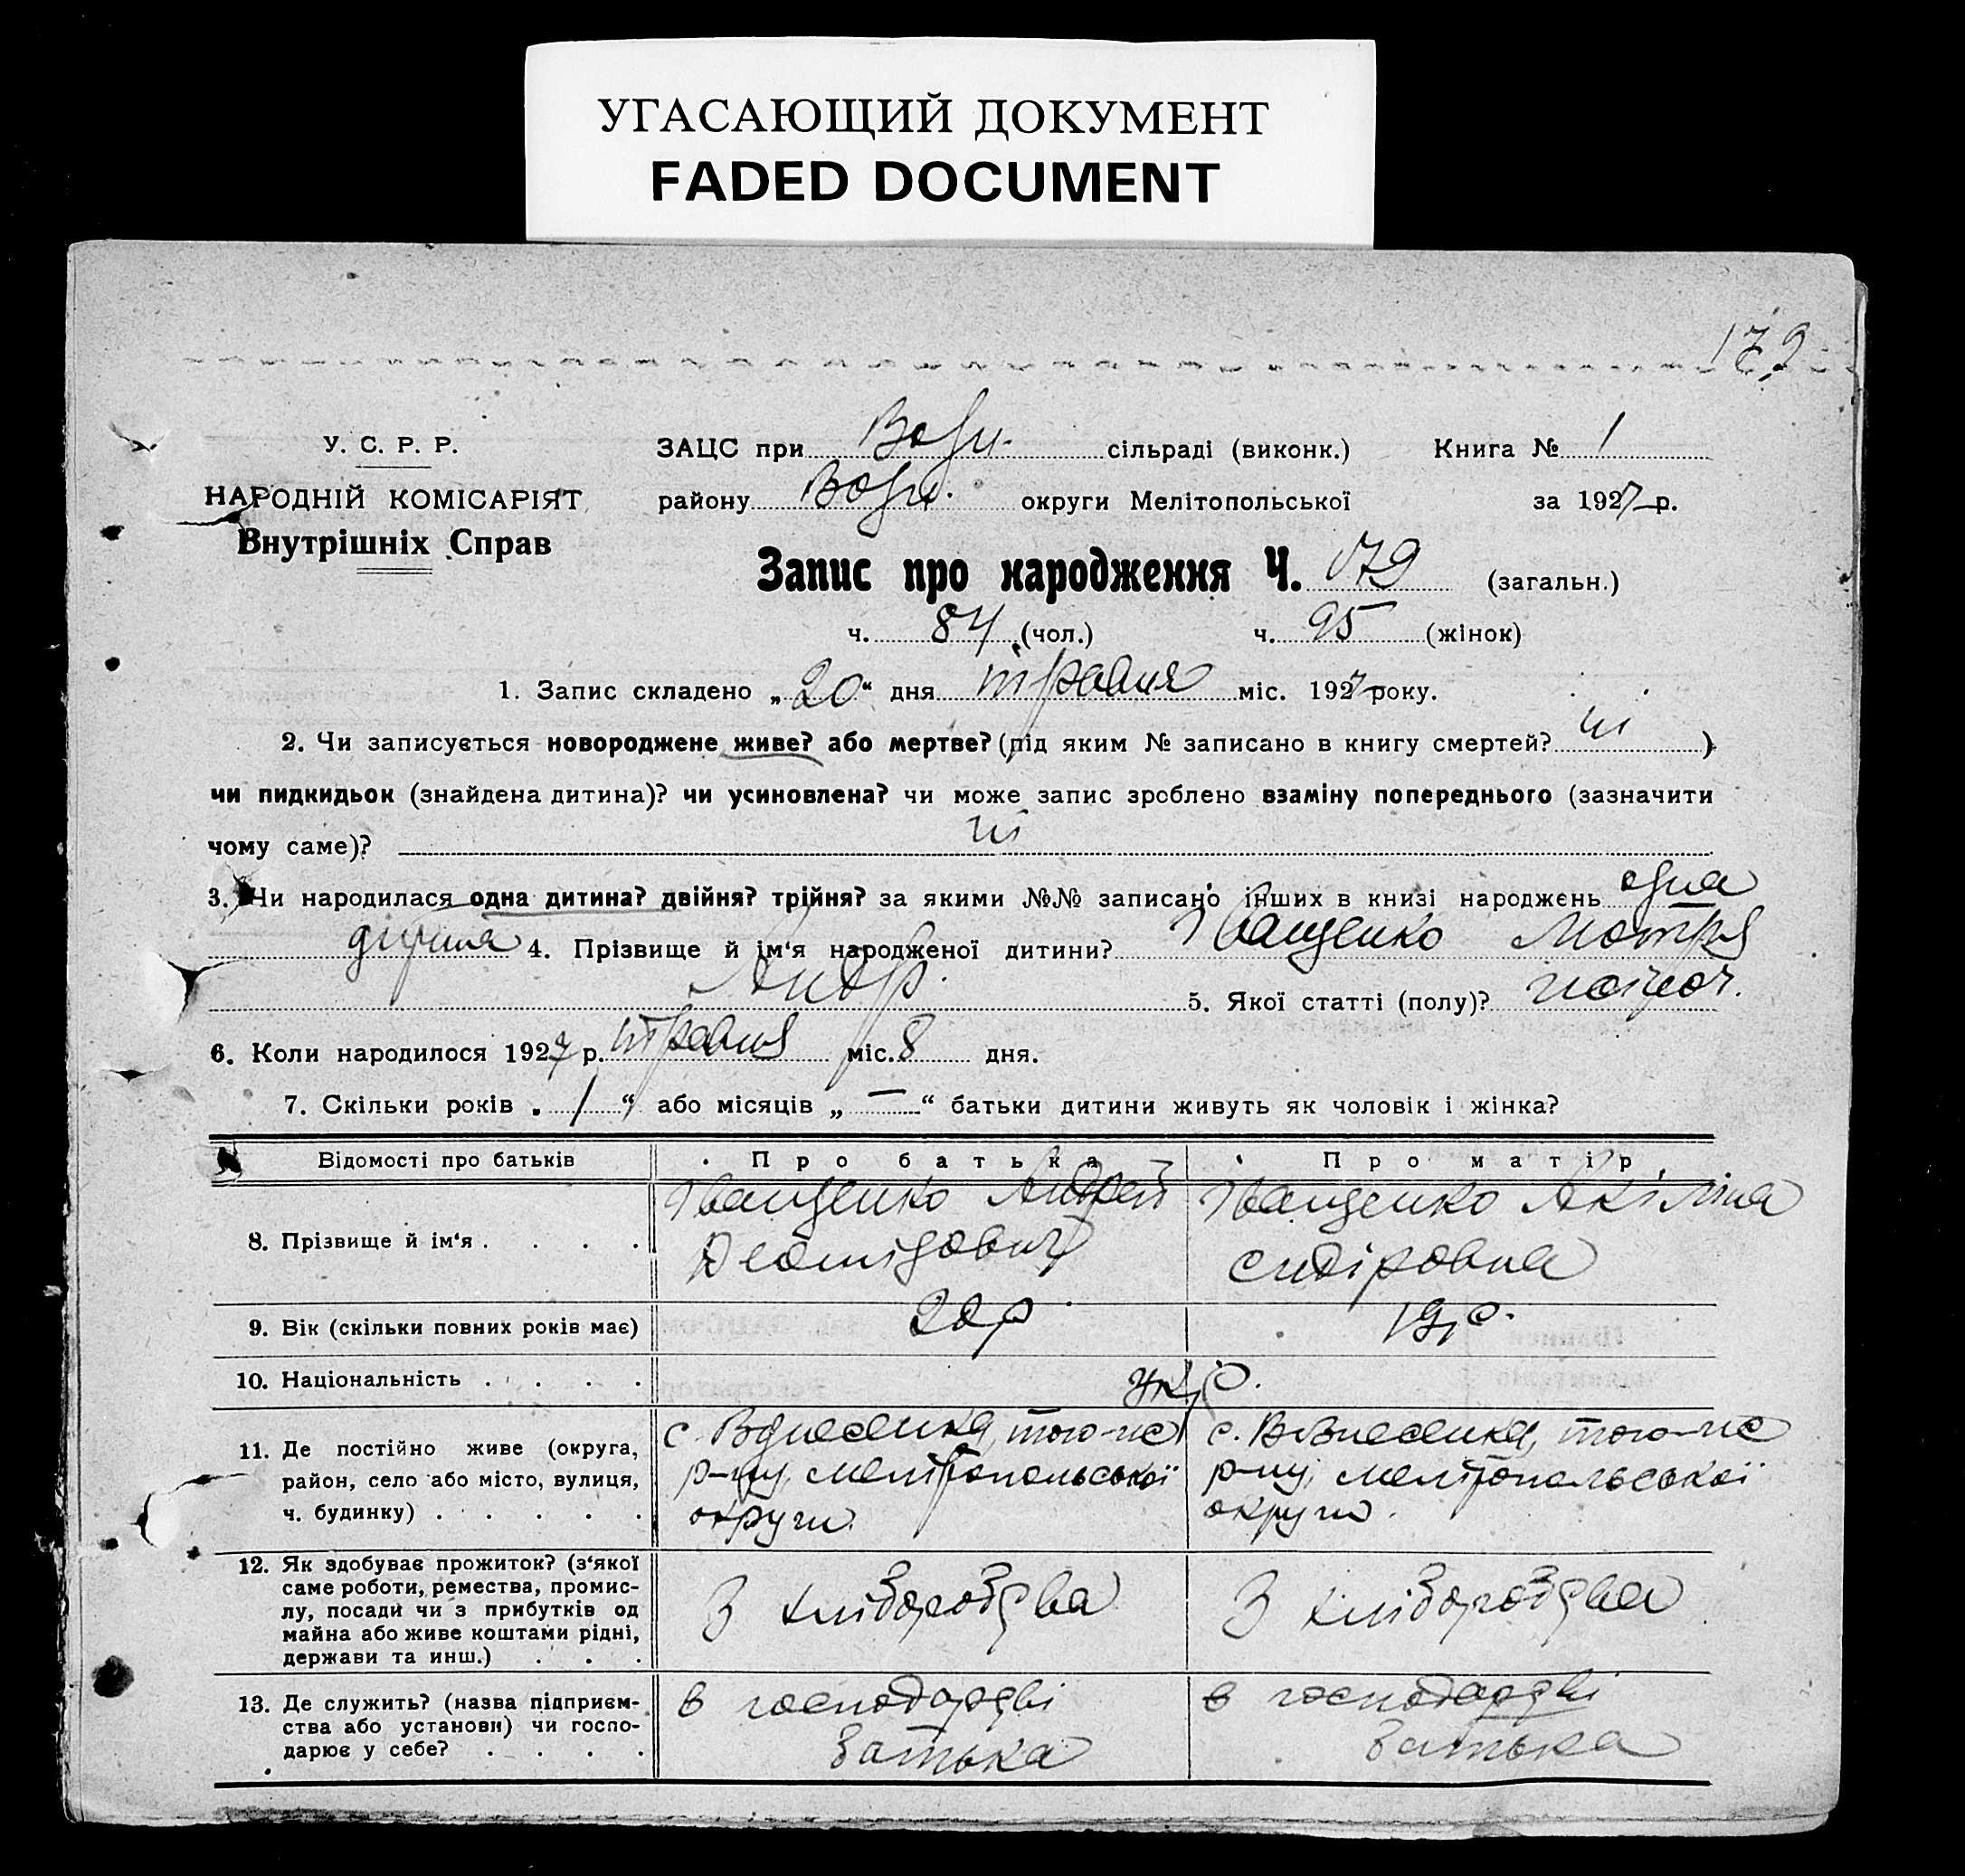 УГАСАЮЩИЙ ДОКУМЕНТ
FADED DOCUMENT
179
У. С. Р. Р.
НАРОДНІЙ КОМІСАРІЯТ
Внутрішніх Справ
ЗАЦС при сільраді (виконк.) Книга № 1
району округи Мелітопольської за 1927 р.
Запис про народження Ч. 179 (загальн.)
ч. 84 (чол.) ч. 95 (жінок)
1. Запис складено „20“ дня травня міс. 1927 року.
2. Чи записується новороджене живе? або мертве? (під яким № записано в книгу смертей? ні )
чи пидкидьок (знайдена дитина)? чи усиновлена? чи може запис зроблено взаміну попереднього (зазначити
чому саме)? ні
3. Чи народилася одна дитина? двійня? трійня? за якими №№ записано інших в книзі народжень одна
дитина 4. Прізвище й ім‘я народженої дитини? Іващенко Мотря
Андр. 5. Якої статті (полу)? жіноч.
6. Коли народилося 1927 р. травня міс. 8 дня.
7. Скільки років „ 1 “ або місяців „ — “ батьки дитини живуть як чоловік і жінка?
Відомості про батьків Про батька Про матір
8. Прізвище й ім‘я . . . .
Іващенко Андрей
Леонідович
Іващенко Акіліна
Сидіровна
9. Вік (скільки повних років має) 20 р. 19 р.
10. Національність . . . . укр.
11. Де постійно живе (округа,
район, село або місто, вулиця,
ч. будинку) . . . . .
с. Вознесенка, того-же
р-ну, Мелітопольської
округи.
с. Вознесенка, того-же
р-ну, Мелітопольської
округи.
12. Як здобуває прожиток? (з‘якої
саме роботи, ремества, промис-
лу, посади чи з прибутків од
майна або живе коштами рідні,
держави та инш.) . . .
З хліборобства
З хліборобства
13. Де служить? (назва підприєм-
ства або установи) чи госпо-
дарює у себе? . . . .
в господарстві
батька
в господарстві
батька